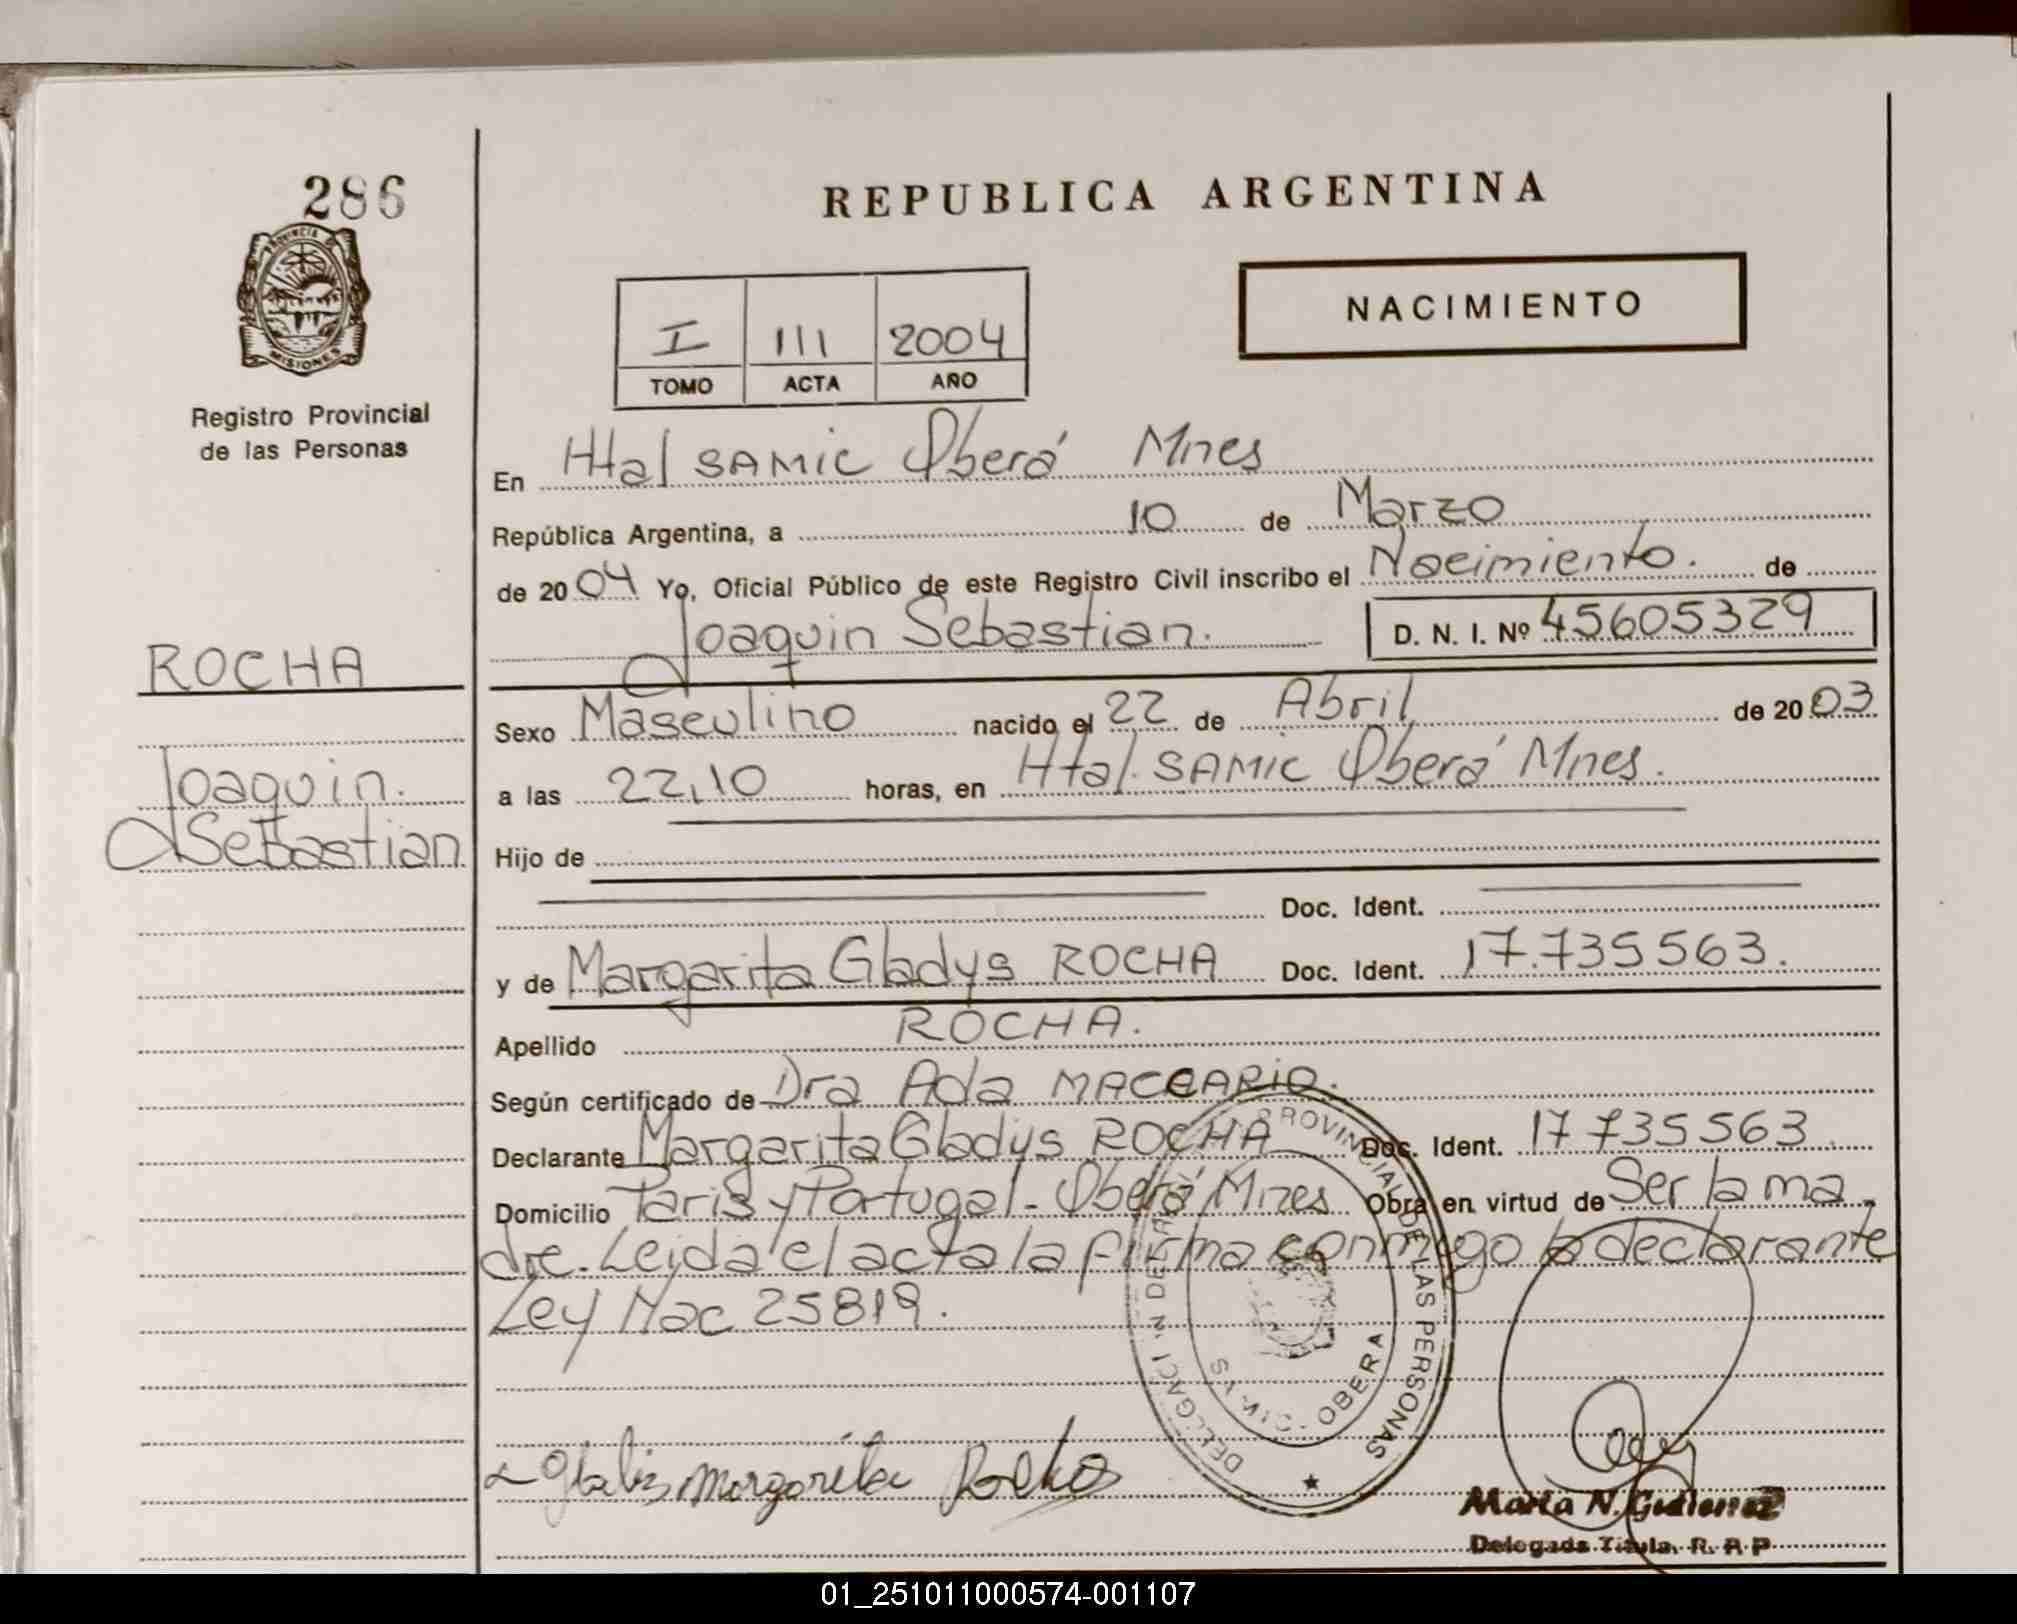 286
PROVINCIA DE
MISIONES
Registro Provincial
de las Personas
ROCHA
Joaquin.
Sebastian
REPUBLICA ARGENTINA
I 111 2004
TOMO ACTA AÑO
NACIMIENTO
En Htal SAMIC Oberá Mnes
República Argentina, a 10 de Marzo
de 2004 Yo, Oficial Público de este Registro Civil inscribo el Nacimiento. de
Joaquin Sebastian. D. N. I. Nº 45605329
Sexo Masculino nacido el 22 de Abril de 2003
a las 22,10 horas, en Htal. SAMIC Oberá Mnes.
Hijo de
Doc. Ident.
y de Margarita Gladys ROCHA Doc. Ident. 17.735563.
Apellido ROCHA.
Según certificado de Dra Ada MACCARIO.
Declarante Margarita Gladys ROCHA Doc. Ident. 17735563.
Domicilio Paris y Portugal - Oberá Mnes Obra en virtud de Ser la ma
dre. Leida el acta la firma conmigo la declarante
Ley Nac 25819.
PROVINCIAL DE LAS PERSONAS
OBERA
Gladis Margarita Rocha
Maria N. Gutierrez
Delegada Titula. R. R. P
01_251011000574-001107